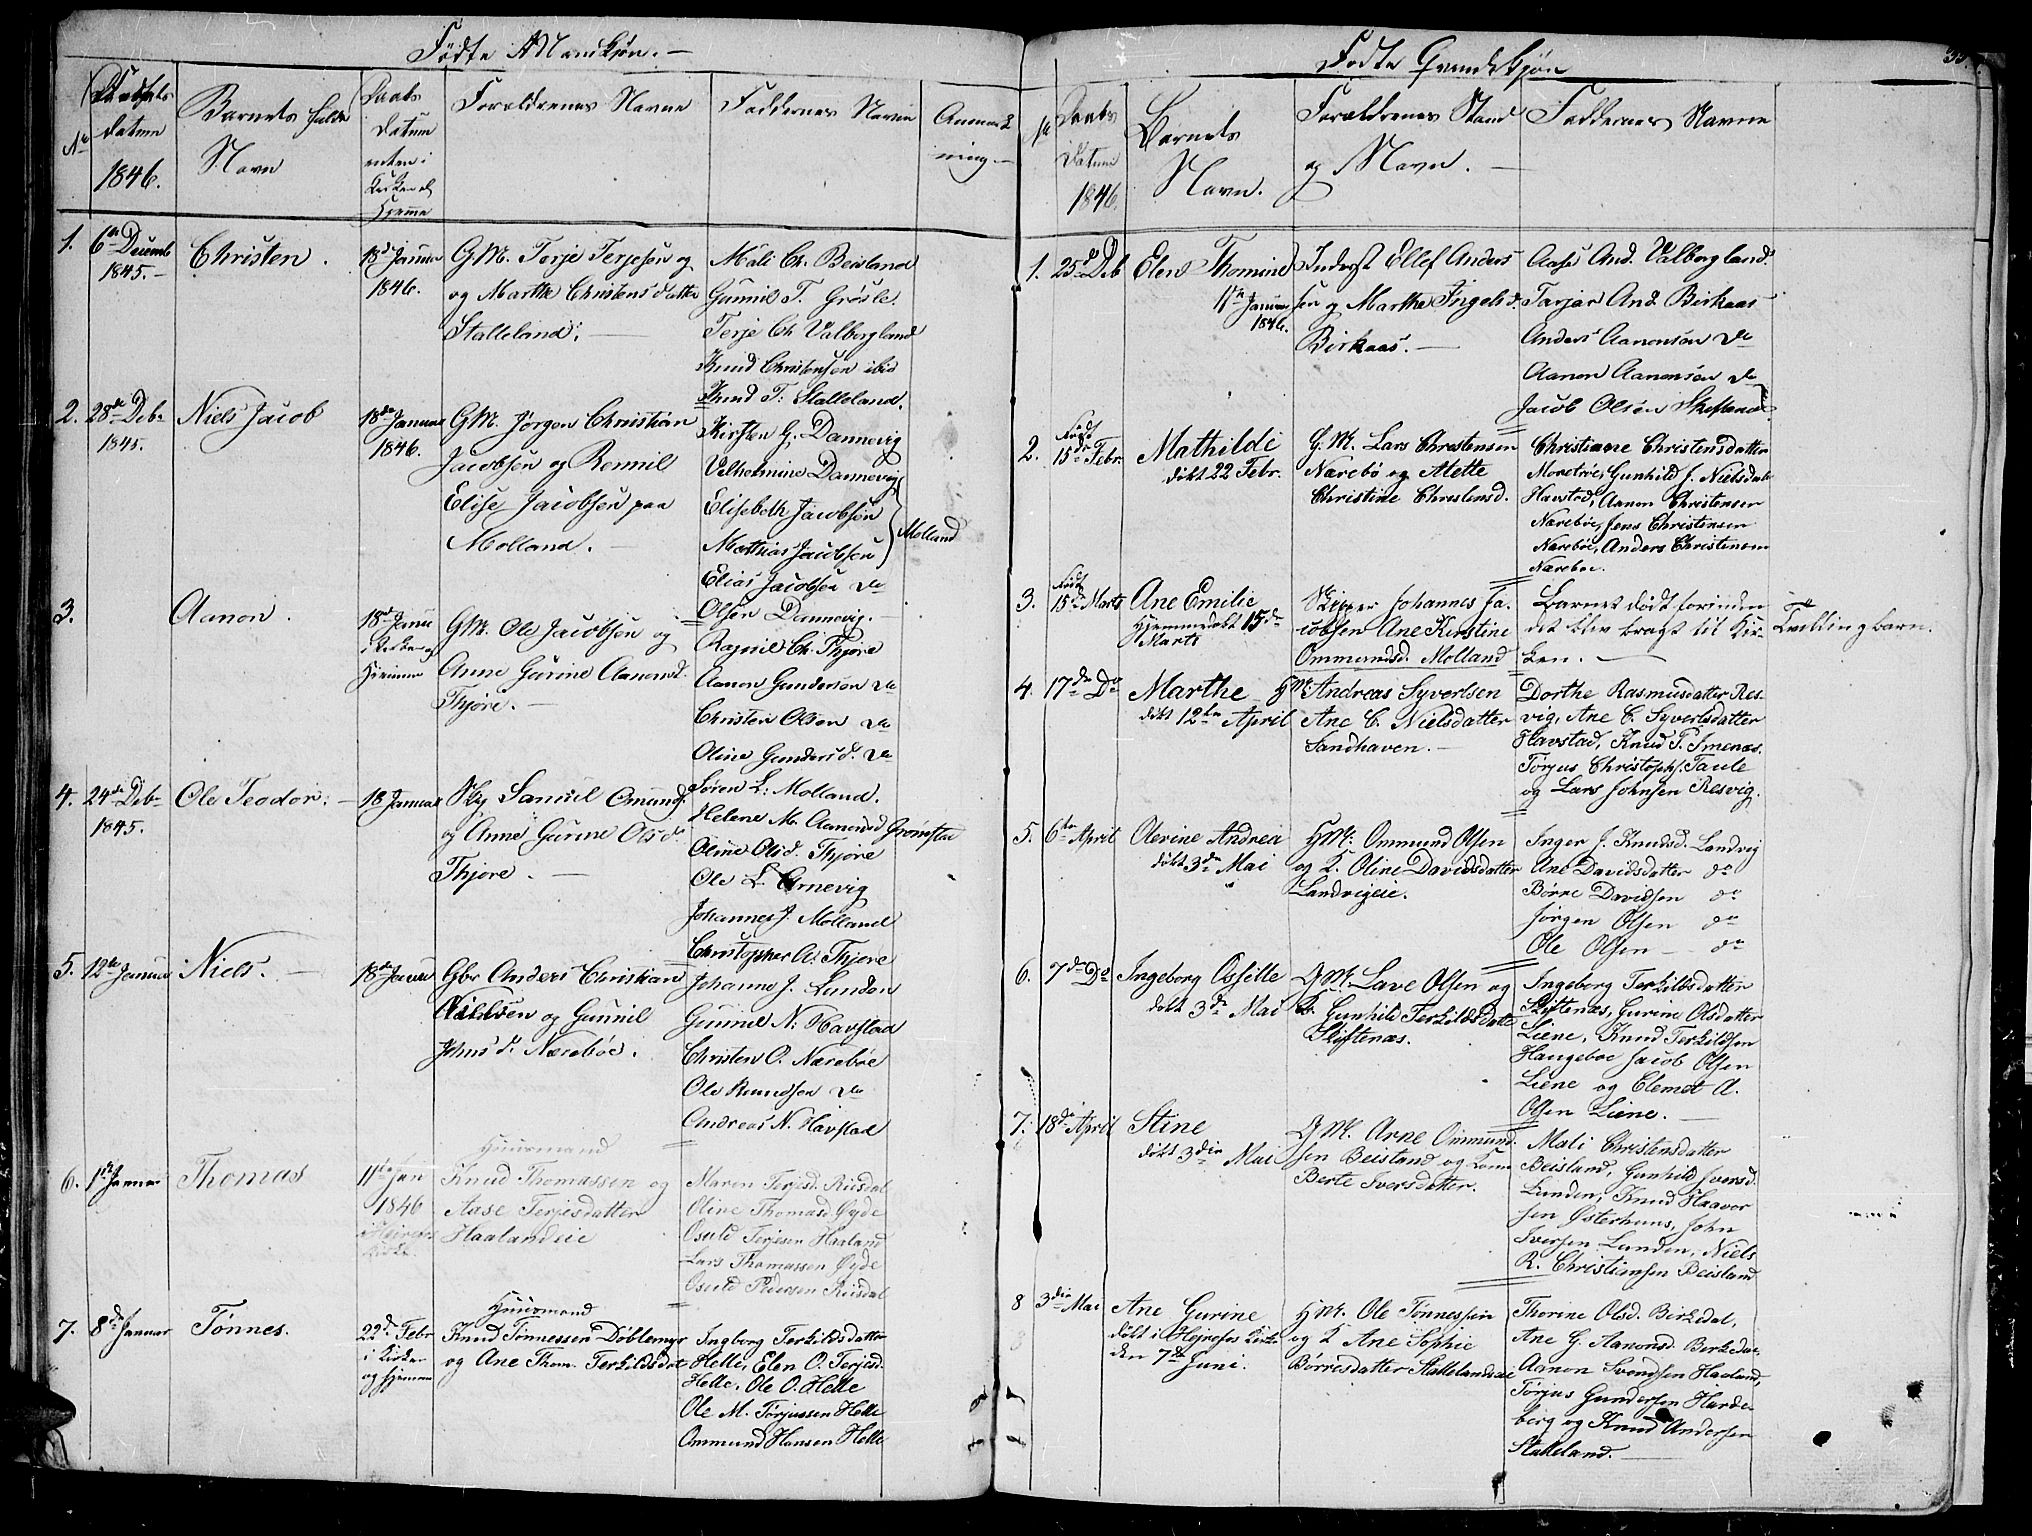 Fødte Mandkjøn. —
No
Fødsels
Datum
1846.
Barnets fulde
Navn
Daabs
Datum
enten i
Kirken el
Hjemme
Forældrenes Navne
Faddernes Navne
Anmærk
ning. —
1.
6te Decemb
1845. —
Christen.
18de Januar
1846.
GM. Terje Terjesen og
og Marthe Christens datter
Stalleland. —
Mali Ch. Beisland
Gunnil T. Grøsle
Terje Ch. Valborgland
Knud Christensen ibid
Knud T. Stalleland.
2.
28de Debr
1845.
Niels Jacob
18de Januar
1846.
GM. Jørgen Christian
Jacobsen og Rennil
Elise Jacobsen paa
Molland. —
Kirsten G. Dannevig
Vilhelmine Dannevig
Elisabeth Jacobsen
Mathias Jacobsen
Elias Jacobsen do
Olsen Dannevig. —
Molland
3.
Aanon.
18de Janu
i Kirken og
Hjemme
GM. Ole Jacobsen og
Anne Gurine Aanonsd.
Thjøre. —
Ragnil Ch. Thjøre
Aanon Gundersen do
Christen Olsen do
Oline Gundersd. do
4.
24de Debr
1845.
Ole Teodor. —
18 Januar
Skp Samuel Omunds.
og Anne Gurine Olsd.
Thjøre. —
Søren L. Molland.
Helene M. Aanonsd Grømstad
Oline Olsd. Thjøre
Ole L. Arnevig
Johannes J. Molland
Christopher A. Thjøre
5.
12te Januar
Niels. —
18de Januar
Gbr Anders Christian
Nielsen og Gunnil
Johns d. Nærebøe.
Johanne J. Lunden
Gunnil N. Havstad
Christen O. Nærebøe
Ole Knudsen do
Andreas N. Havstad
6.
1ste Januar
Thomas
11te Jan
1846
i Heirefos
Kirke
Huusmand
Knud Thomassen og
Aase Terjesdatter
Haalandeie
Maren Terjesd. Riisdal
Oline Thomasd. Øyde
Osuld Terjesen Haaland
Lars Thomassen Øyde
Osuld Pedersen Riisdal
7.
8de Januar
Tønnes.
22de Febr
i Kirken
og Hjemme
Huusmand
Knud Tønnessen Døblemyr
og Ane Thom. Terkildsdat
Ingborg Terkildsdatter
Helle, Elen O. Terjesd.
Helle, Ole O. Helle
Ole M. Tørjussen Helle
Ommund Hansen Helle
Fødte Qvindekjøn
No
Daabs
Datum
1846.
Barnets
Navn.
Forældrenes Stand
og Navn. —
Faddernes Navne
1.
25de Deb
Elen Thomine
11te Januar
1846.
Inderst Ellef Anders
sen og Marthe Ingelsd.
Birkaas. —
Aase And. Valborgland.
Tarjar And. Birkaas
Anders Aanonsen do
Aanon Aanonsen do
Jacob Olsen Skiftenæs
2.
Født
15de Febr.
Mathilde
døbt 22 Febr.
G. M. Lars Christensen
Nærebø og Mette
Christine Christensd.
Christiane Christensdatter
Moretrøe, Gunhild J. Nielsdatr
Havstad, Aanon Christensen
Nærebøe, Jens Christensen
Nærebøe, Anders Christensen
Nærebøe.
3.
Født
15de Marts
Ane Emilie
Hjemmedøbt 15de
Marts
Skipper Johannes Ja-
cobsen Ane Kirstine
Ommundsd. Molland
Barnet dødt forinden
det blev bragt til Kir-
ken. —
Tvillingbarn.
4.
17de Do
Marthe
døbt 12te April
GM Andreas Syvertsen
Ane C. Nielsdatter
Sandhaven. —
Dorthe Rasmusdatter Res-
vig, Ane C. Syvertsdatter
Havstad, Knud P. Imenæs.
Tørjus Christophs. Taule
og Lars Johnsen Resvig.
5.
6te April
Olevine Andrea
døbt 3de Mai
HM: Ommund Olsen
og K. Oline Davidsdatter
Landvigeie.
Inger J. Knudsd. Landvig
Ane Davidsdatter do
Børre Davidsen do
Jørgen Olsen do
Ole Olsen — do
6.
7de Do
Ingeborg Ossille
døbt 3de Mai
GM. Lave Olsen og
K. Gunhild Terkildsdatr
Skiftenæs.
Ingeborg Terkildsdatter
Skiftenæs, Gurine Olsdatter
Liene, Knud Terkildsen
Haugeboe Jacob Olsen
Liene og Clemet A.
Olsen Liene. —
7.
18de April
Stine
døbt 3die Mai
GM. Arne Ommund
sen Beisland og Kone
Berte Iversdatter.
Mali Christensdatter
Beisland, Gunhild Iversd.
Lunden, Knud Haavor
sen Østerhuus, John
Iversen Lunden, Niels
R. Christiansen Beisland
8
3die Mai
Ane Gurine
døbt i Heirefos Kirke
den 7de Juni.
HM. Ole Tønnessen
og K Ane Sophie
Børresdatter Stallelandseie
Thorine Olsd. Birkedal,
Ane G. Aanonsd. Birkedal
Aanon Svendsen Haaland,
Tørjus Gundersen Harde-
berg og Knud Andersen
Stalleland. —